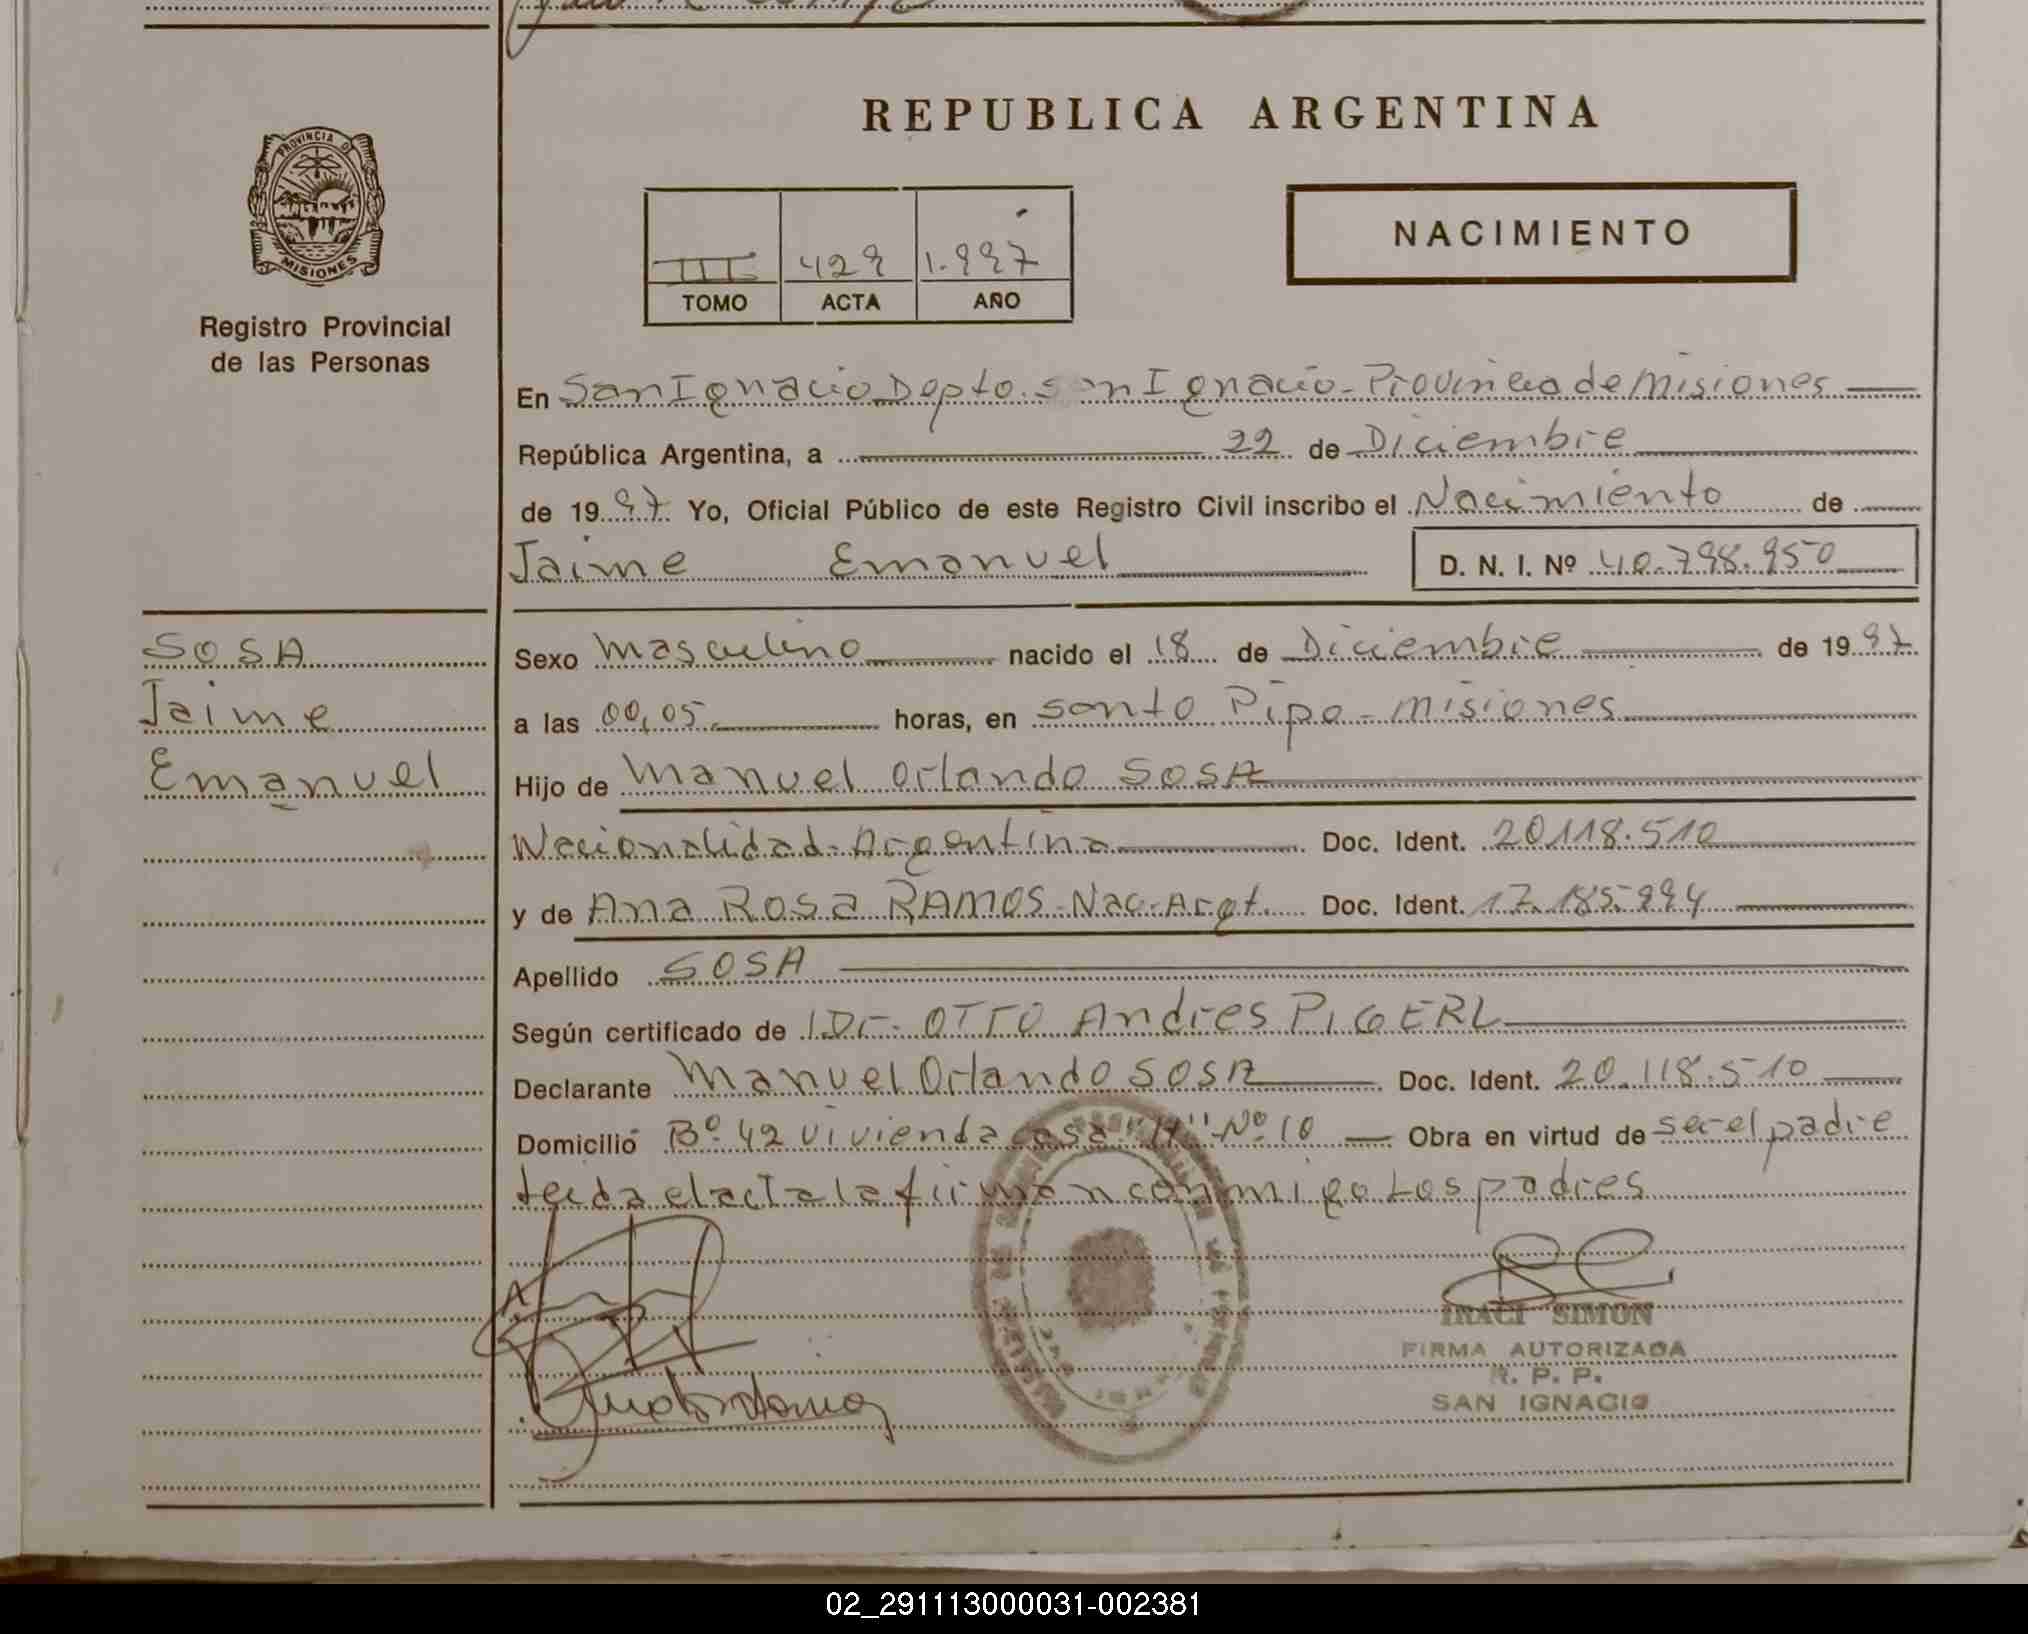 REPUBLICA ARGENTINA
PROVINCIA DE
MISIONES
Registro Provincial
de las Personas
NACIMIENTO
III 429 1.997
TOMO ACTA AÑO
En San Ignacio Depto. San Ignacio - Provincia de Misiones
República Argentina, a 22 de Diciembre
de 1997 Yo, Oficial Público de este Registro Civil inscribo el Nacimiento de
Jaime Emanuel D. N. I. Nº 40.798.950
SOSA
Jaime
Emanuel
Sexo Masculino nacido el 18 de Diciembre de 1997
a las 00,05 horas, en Santo Pipo - Misiones
Hijo de Manuel Orlando SOSA
Nacionalidad - Argentina Doc. Ident. 20118.510
y de Ana Rosa RAMOS - Nac. Argt. Doc. Ident. 17.185.994
Apellido SOSA
Según certificado de Dr. OTTO Andres PIGERL
Declarante Manuel Orlando SOSA Doc. Ident. 20.118.510
Domicilio Bº 42 vivienda casa "H" Nº 10 Obra en virtud de ser el padre
leida el acta la firman conmigo Los padres
IRACI SIMON
FIRMA AUTORIZADA
R. P. P.
SAN IGNACIO
02_291113000031-002381